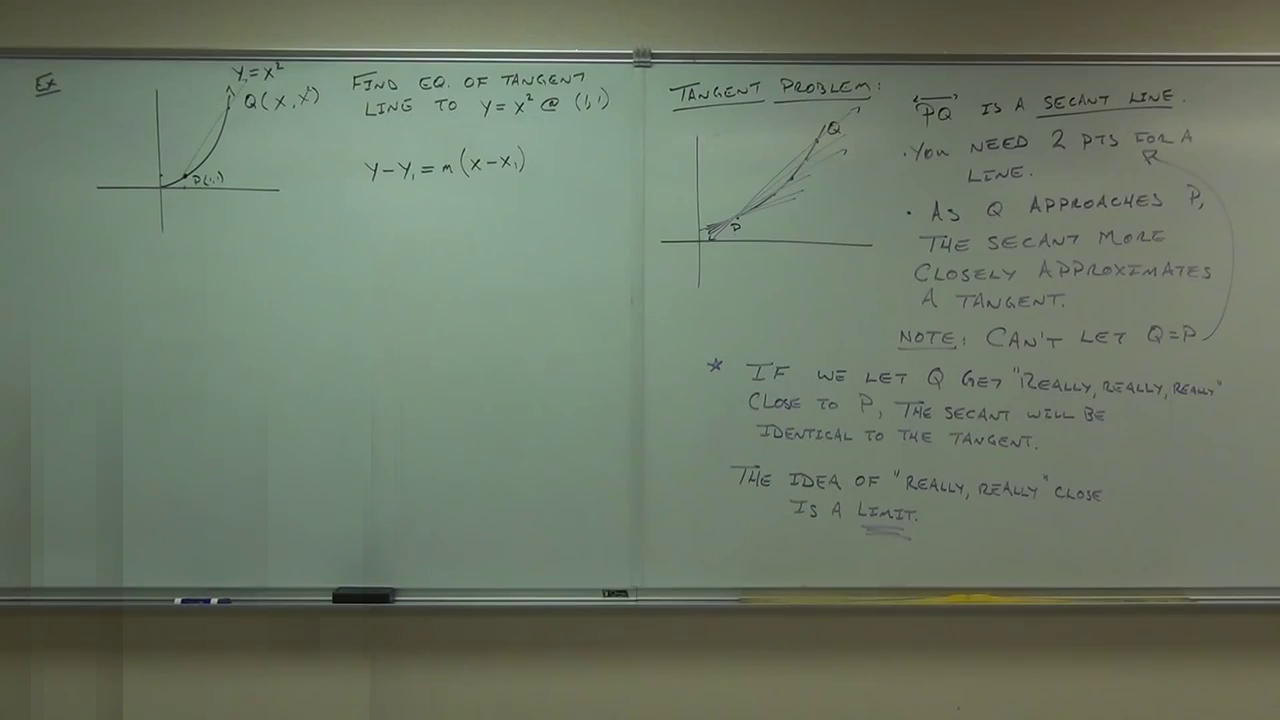 Ex
Y=X²
Q(X,X²)
P(1,1)
FIND EQ. OF TANGENT
LINE TO Y=X² @ (1,1)
Y-Y₁=m(X-X₁)
TANGENT PROBLEM:
Q
P
PQ IS A SECANT LINE.
·YOU NEED 2 PTS FOR A
LINE.
· AS Q APPROACHES P,
THE SECANT MORE
CLOSELY APPROXIMATES
A TANGENT.
NOTE: CAN'T LET Q=P
* IF WE LET Q GET "REALLY, REALLY, REALLY"
CLOSE TO P, THE SECANT WILL BE
IDENTICAL TO THE TANGENT.
THE IDEA OF "REALLY, REALLY" CLOSE
IS A LIMIT.